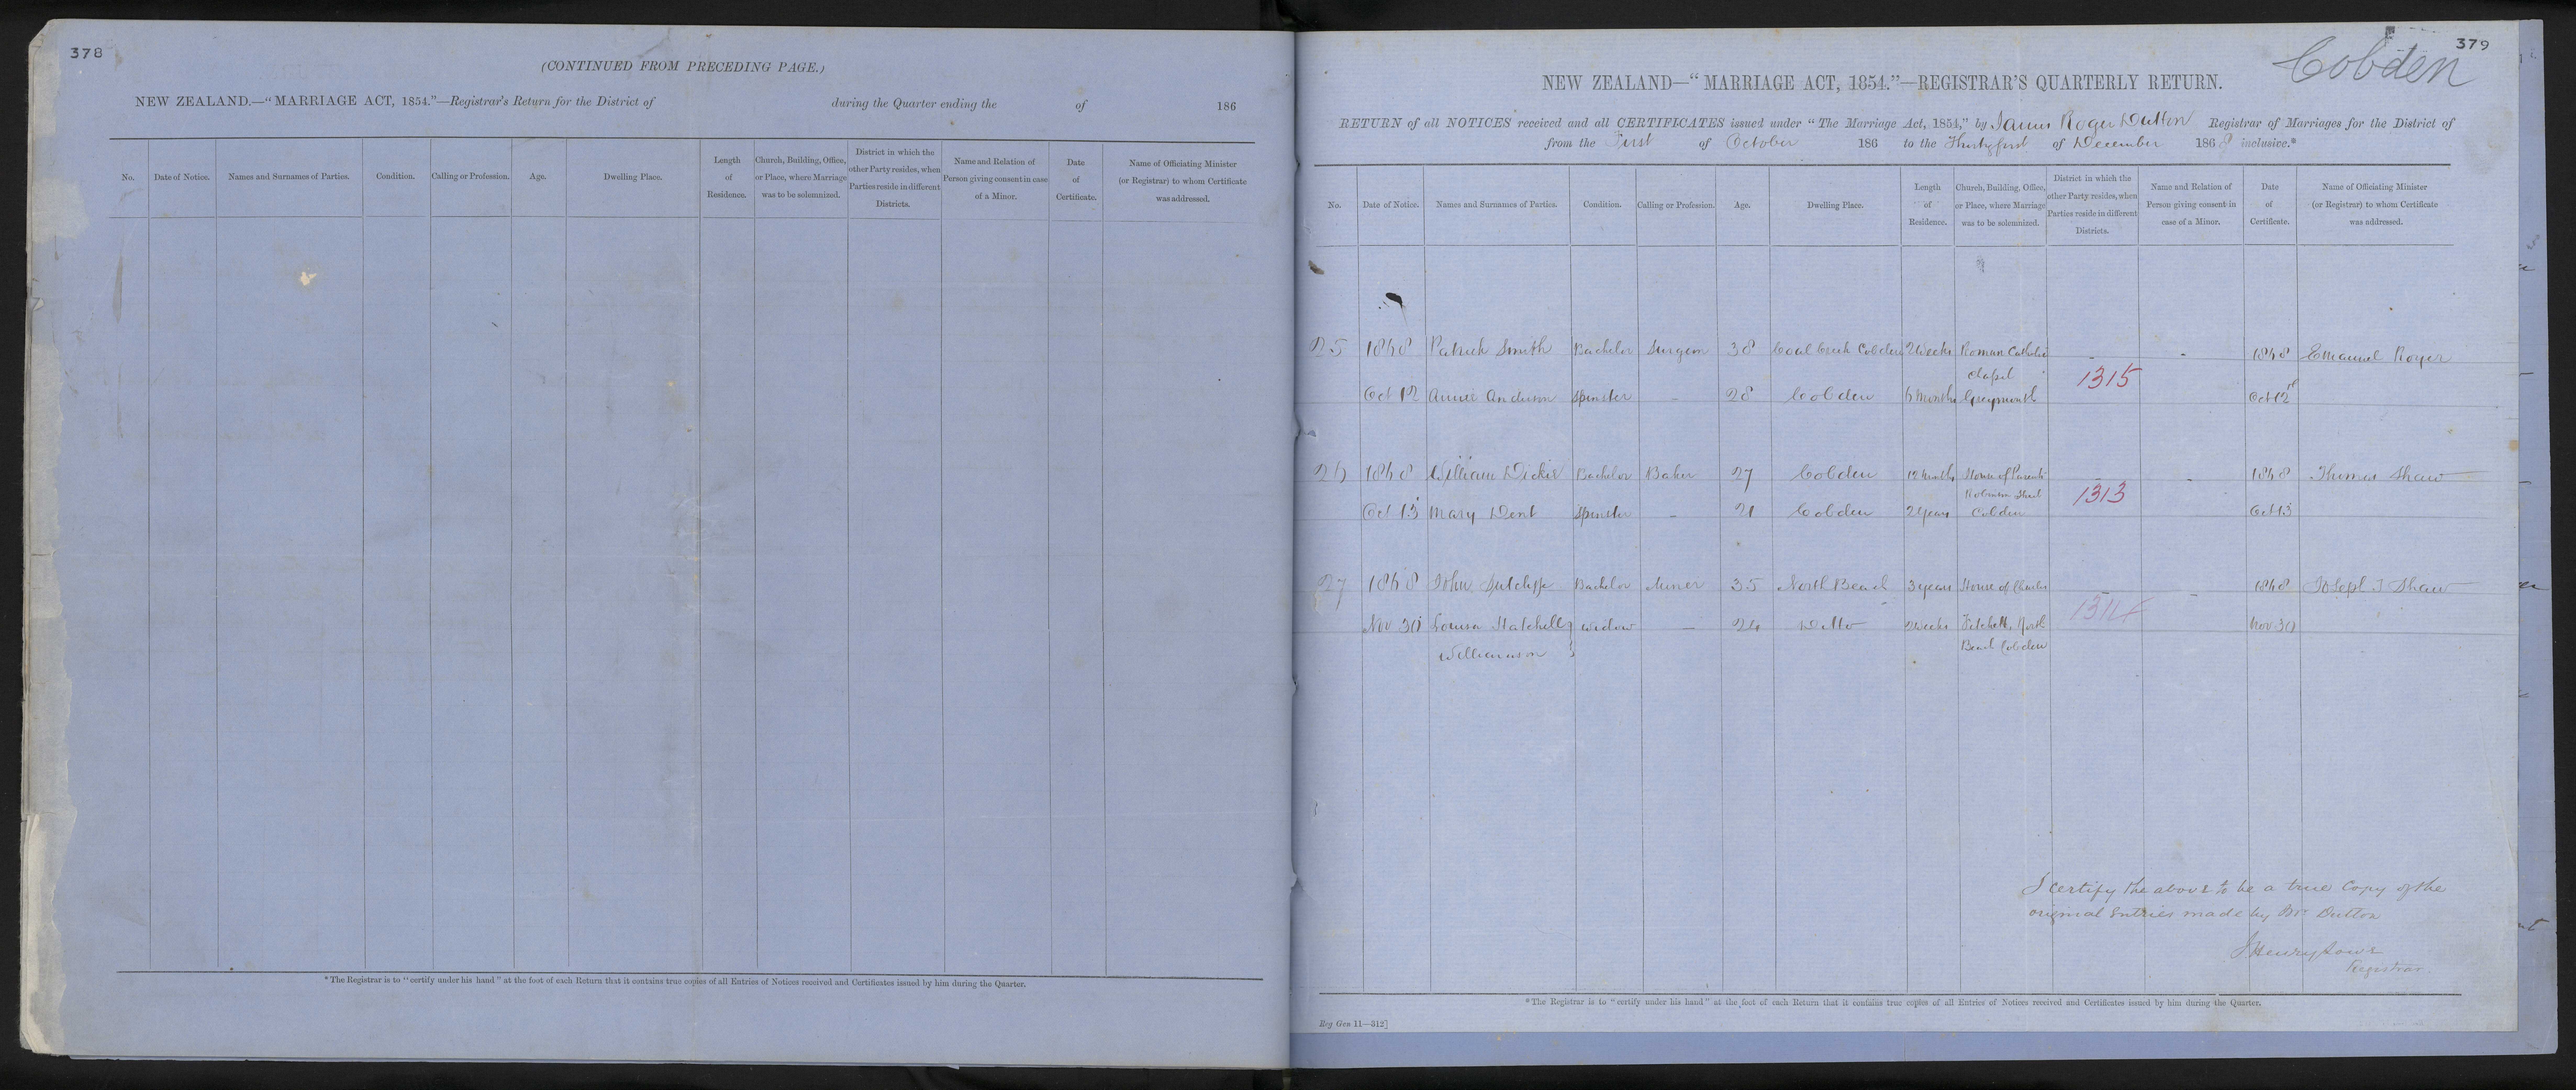 378
(CONTINUED FROM PRECEDING PAGE.)
NEW ZEALAND.—"MARRIAGE ACT, 1854."—Registrar's Return for the District of during the Quarter ending the of 186
No. Date of Notice. Names and Surnames of Parties. Condition. Calling or Profession. Age. Dwelling Place. Length of Residence. Church, Building, Office, or Place, where Marriage was to be solemnized. District in which the other Party resides, when Parties reside in different Districts. Name and Relation of Person giving consent in case of a Minor. Date of Certificate. Name of Officiating Minister (or Registrar) to whom Certificate was addressed.
*The Registrar is to "certify under his hand" at the foot of each Return that it contains true copies of all Entries of Notices received and Certificates issued by him during the Quarter.
379
Cobden
NEW ZEALAND—"MARRIAGE ACT, 1854."—REGISTRAR'S QUARTERLY RETURN.
RETURN of all NOTICES received and all CERTIFICATES issued under "The Marriage Act, 1854," by James Roger Dutton Registrar of Marriages for the District of
from the First of October 186 to the Thirty first of December 1868 inclusive.*
No. Date of Notice. Names and Surnames of Parties. Condition. Calling or Profession. Age. Dwelling Place. Length of Residence. Church, Building, Office, or Place, where Marriage was to be solemnized. District in which the other Party resides, when Parties reside in different Districts. Name and Relation of Person giving consent in case of a Minor. Date of Certificate. Name of Officiating Minister (or Registrar) to whom Certificate was addressed.
25 1868 Patrick Smith Bachelor Surgeon 38 Coal Creek Cobden 2 weeks Roman Catholic - - 1868 Emanuel Royer
Chapel 1315
Oct 12 Annie Anderson Spinster - 28 Cobden 6 months Greymouth Oct 12
26 1868 William Dickie Bachelor Baker 27 Cobden 12 months House of Parents - 1868 Thomas Shaw
Robinson Street 1313
Oct 13 Mary Dent Spinster - 21 Cobden 2 years Cobden Oct 13
27 1868 John Sutcliffe Bachelor Miner 35 North Beach 3 years House of Charles - 1868 Joseph J Shaw
1314
Nov 30 Louisa Hatchell widow — 24 Ditto 2 weeks North Nov 30
Williamson } Beach Cobden
I certify the above to be a true Copy of the
original Entries made by Mr Dutton
Registrar
*The Registrar is to "certify under his hand" at the foot of each Return that it contains true copies of all Entries of Notices received and Certificates issued by him during the Quarter.
Reg Gen 11—312]